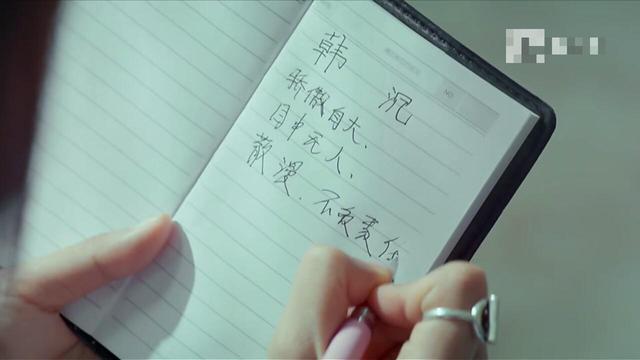 韩 沉
骄傲自大、
目中无人、
散漫、不负责任
NO